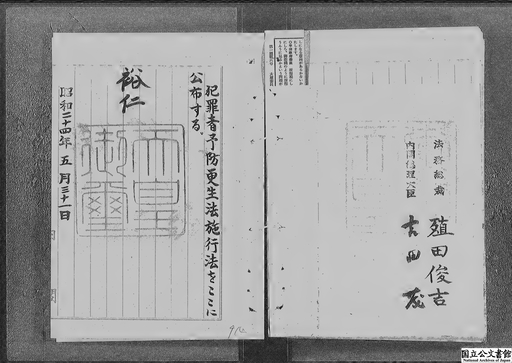 犯罪者予防更生法施行法をここに
公布する。
裕仁
天皇
御璽
昭和二十四年五月三十一日
法務総裁
殖田俊吉
内閣総理大臣
吉田茂
国立公文書館
National Archives of Japan